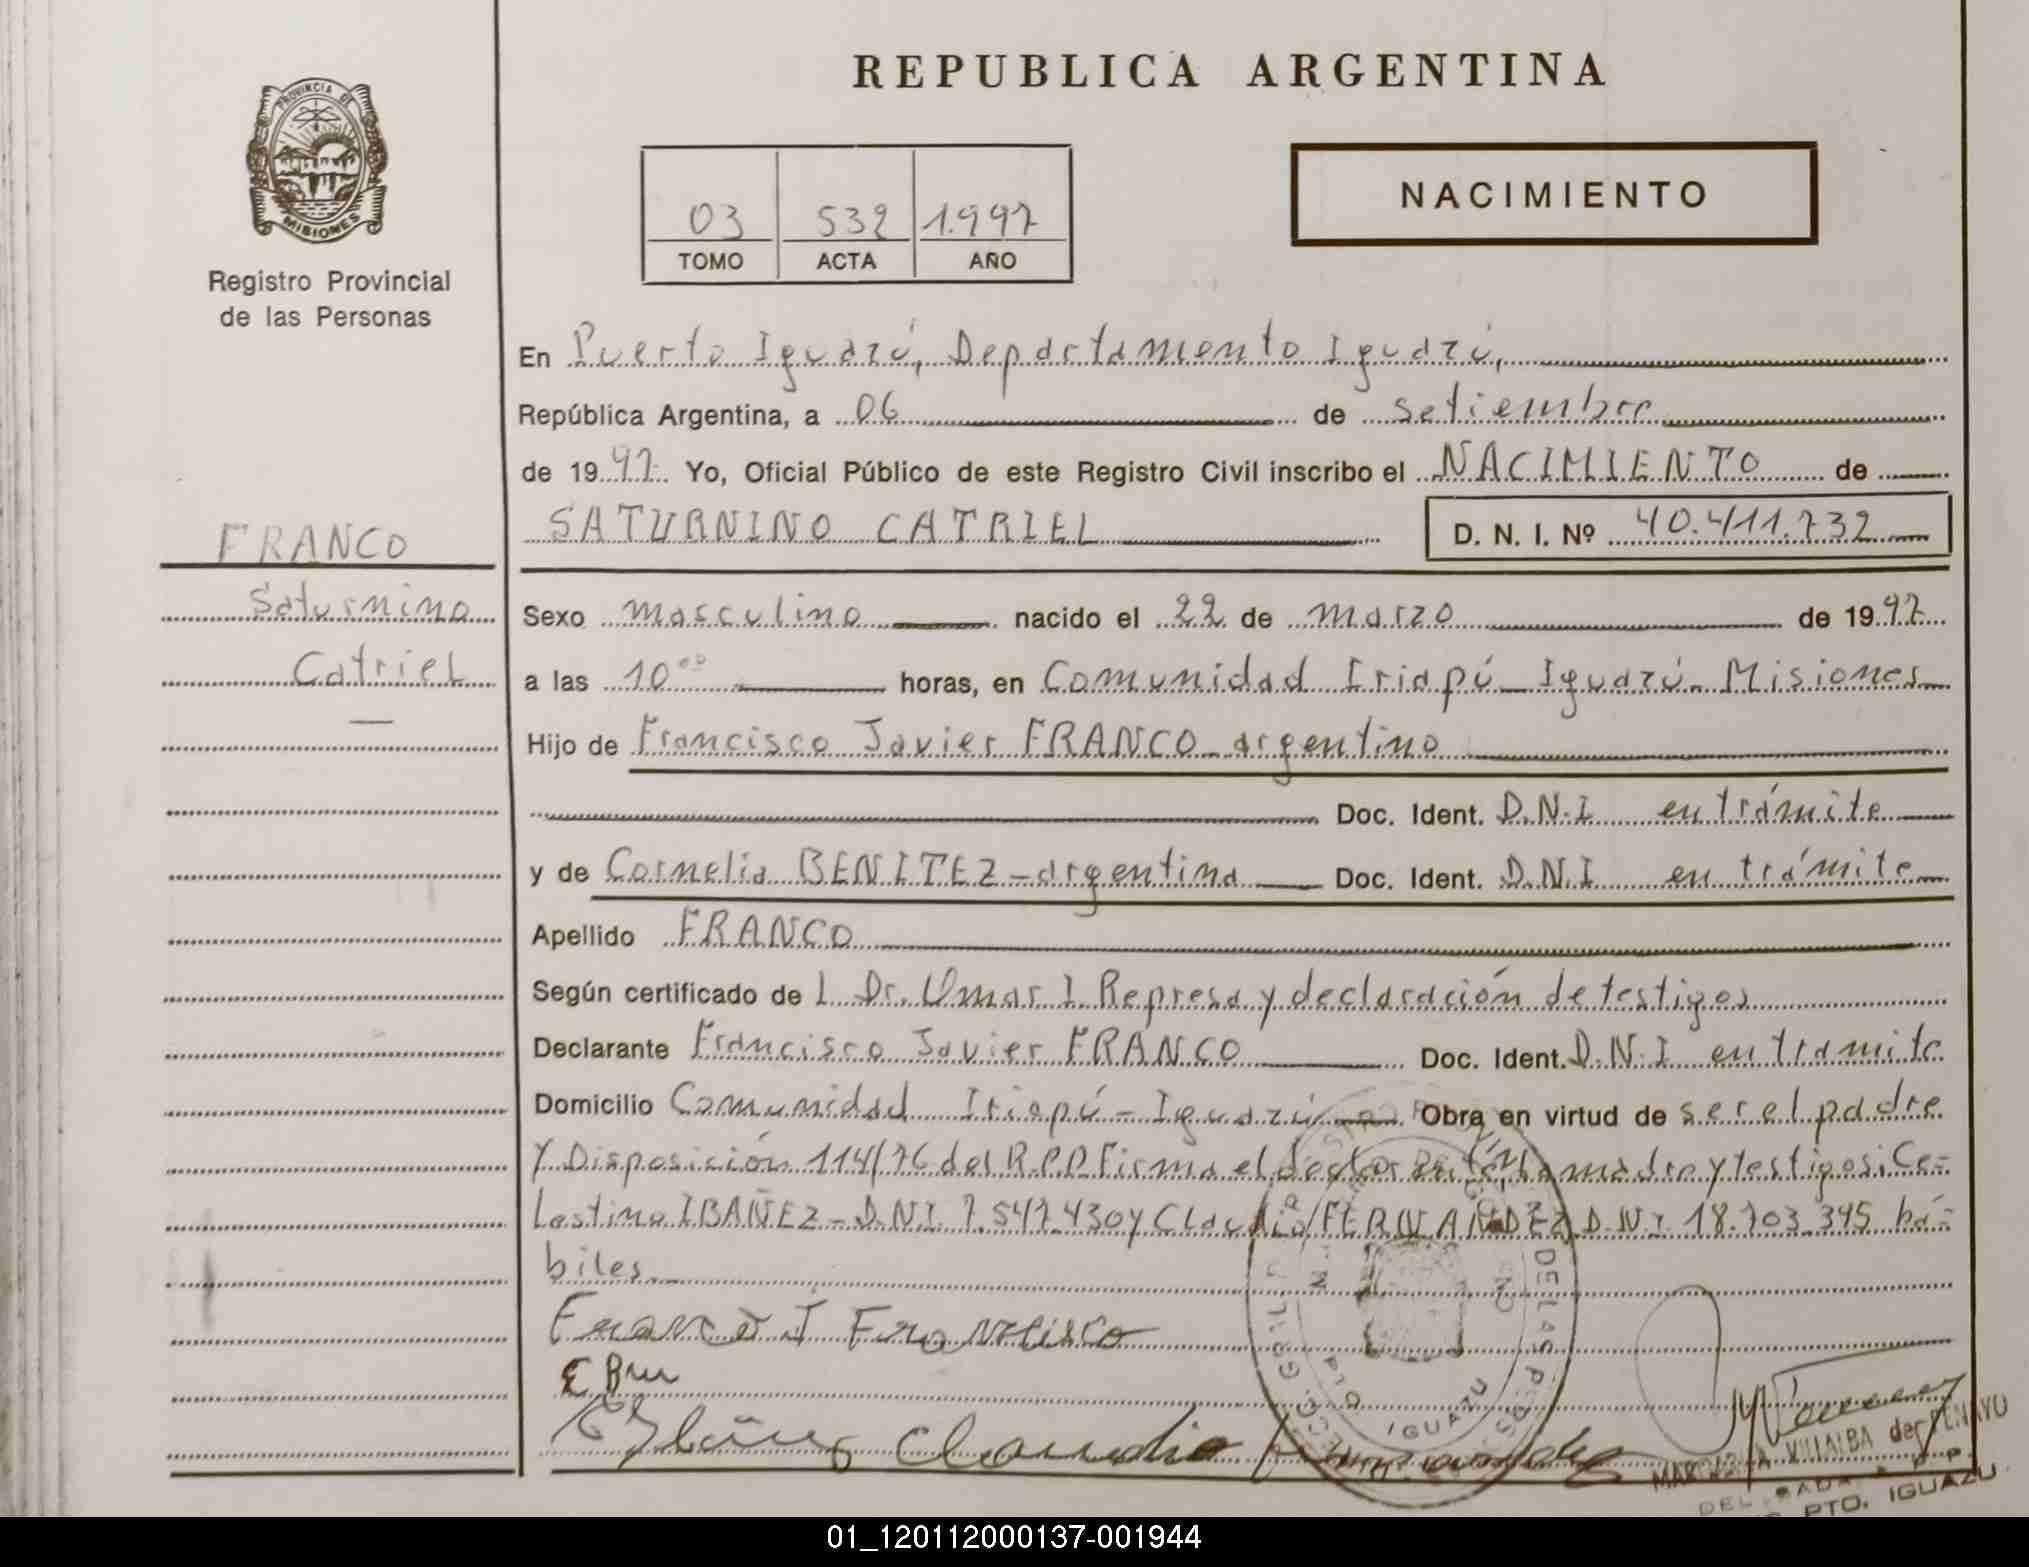 REPUBLICA ARGENTINA
PROVINCIA DE
MISIONES
Registro Provincial
de las Personas
03 532 1.997
TOMO ACTA AÑO
NACIMIENTO
En Puerto Iguazú, Departamento Iguazú,
República Argentina, a 06 de setiembre
de 1997. Yo, Oficial Público de este Registro Civil inscribo el NACIMIENTO de
SATURNINO CATRIEL D. N. I. Nº 40.411.732
FRANCO
Saturnino
Catriel
Sexo masculino nacido el 22 de marzo de 1997
a las 10⁰⁰ horas, en Comunidad Iriapú - Iguazú - Misiones
Hijo de Francisco Javier FRANCO - argentino
Doc. Ident. D.N.I en trámite
y de Cornelia BENITEZ - argentina Doc. Ident. D.N.I en trámite
Apellido FRANCO
Según certificado de l Dr. Omar I. Represa y declaración de testigos
Declarante Francisco Javier FRANCO Doc. Ident. D.N.I en tramite
Domicilio Comunidad Iriapú - Iguazú - Obra en virtud de ser el padre
y Disposición 114/76 del R.P.P. Firma el declarante, la madre y testigos: Ce-
lestino IBAÑEZ - D.N.I. 7.547.430 y Claudio FERNANDEZ D.N.I 18.703.395 há-
biles
Franco J Francisco
C Bni
Claudio Fernandez
DE LAS PERSONAS
PTO IGUAZU
VILLALBA de
PTO. IGUAZU
01_120112000137-001944